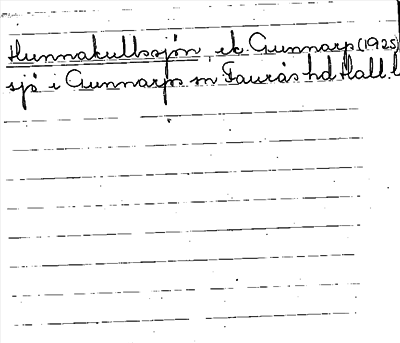 Hunnakullssjön, ek. Gunnarp (1925)
sjö i Gunnarps sn Faurås hd Hall. l